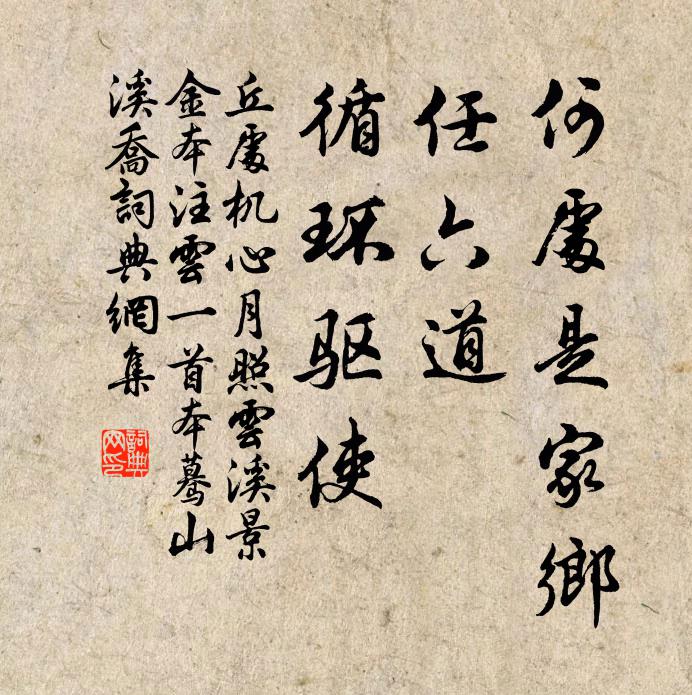 何處是家鄉
任六道
循环驱使
丘處机心月照雲溪景
金本注雲一首本蓦山
溪喬詞典網集
詞典网印